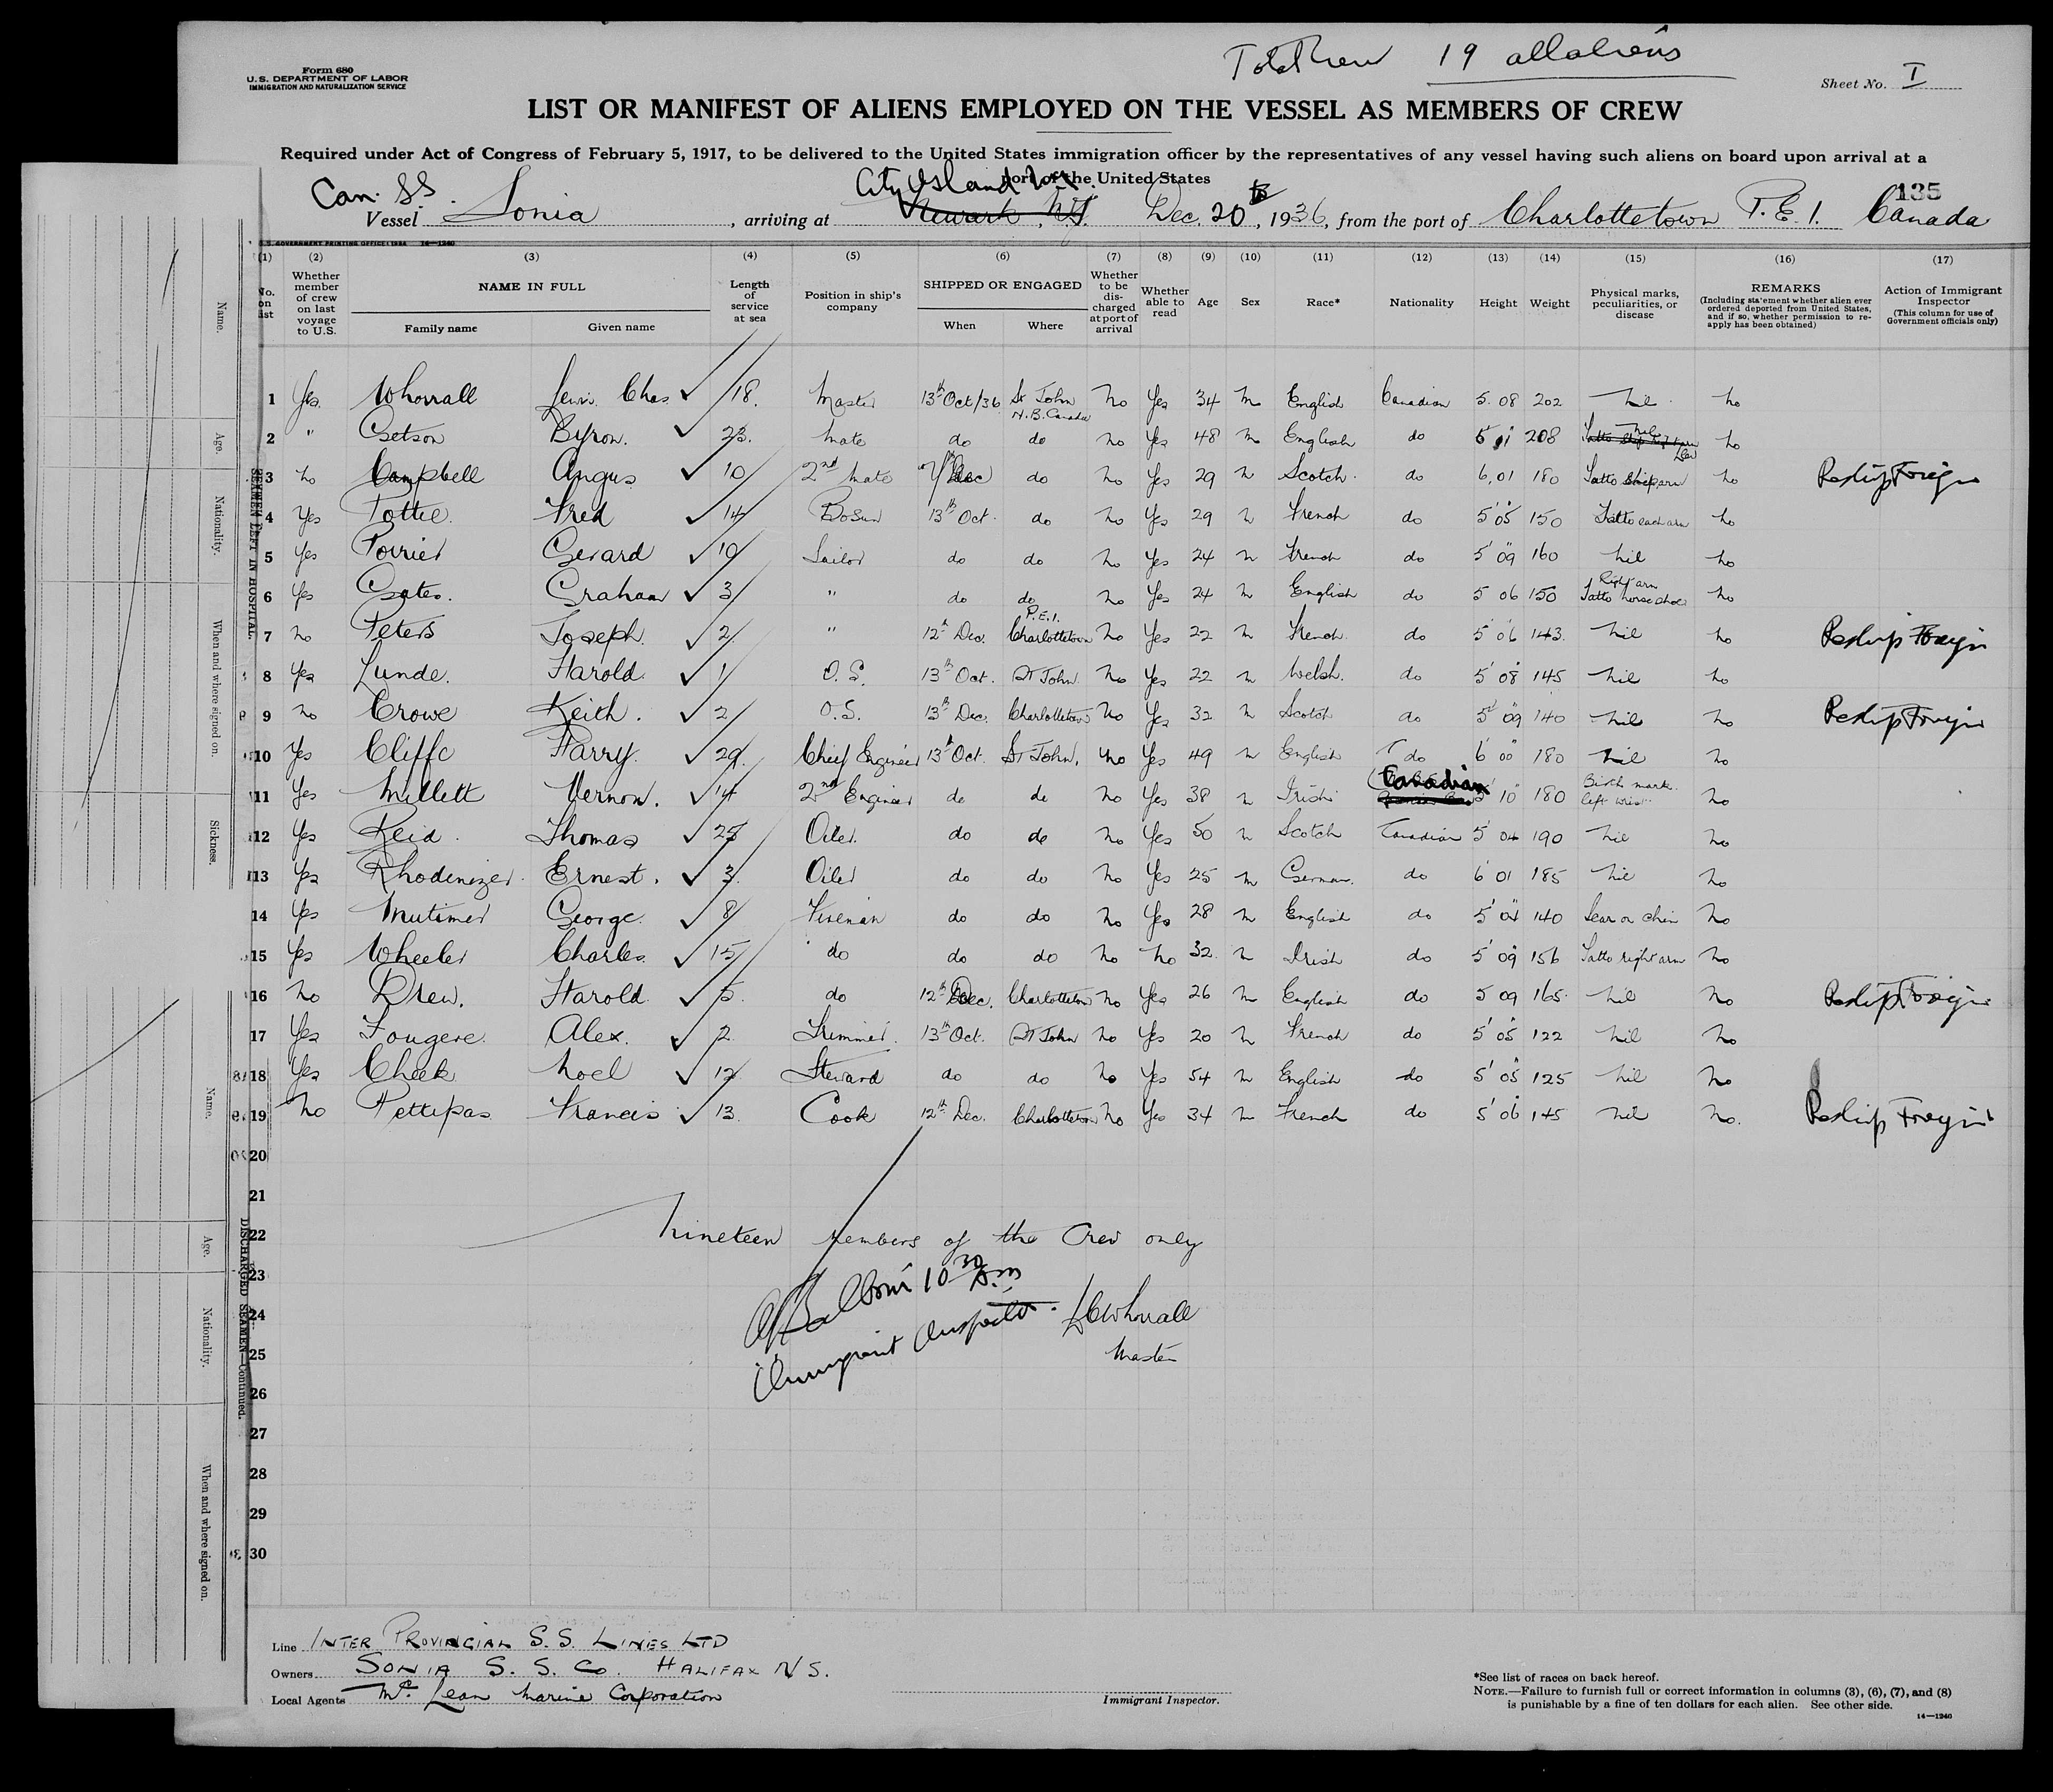 Total Crew 19 all aliens
Form 680
U.S. DEPARTMENT OF LABOR
IMMIGRATION AND NATURALIZATION SERVICE
Sheet No. I
LIST OR MANIFEST OF ALIENS EMPLOYED ON THE VESSEL AS MEMBERS OF CREW
Required under Act of Congress of February 5, 1917, to be delivered to the United States immigration officer by the representatives of any vessel having such aliens on board upon arrival at a
port of the United States
135
Can. SS. City Island N.Y.
Vessel Sonia, arriving at Newark, N.J. Dec. 20, 1936, from the port of Charlottetown P.E.I. Canada
(1) (2) (3) (4) (5) (6) (7) (8) (9) (10) (11) (12) (13) (14) (15) (16) (17)
No. on list
Whether member of crew on last voyage to U.S.
NAME IN FULL
Family name Given name
Length of service at sea
Position in ship's company
SHIPPED OR ENGAGED
When Where
Whether to be discharged at port of arrival
Whether able to read
Age
Sex
Race*
Nationality
Height
Weight
Physical marks, peculiarities, or disease
REMARKS
(Including statement whether alien ever ordered deported from United States, and if so, whether permission to re-apply has been obtained)
Action of Immigrant Inspector
(This column for use of Government officials only)
1 Yes Whorrall Lewis Chas 18 Master 13th Oct/36 St John N.B. Canada No Yes 34 M English Canadian 5 08 202 Nil No
2 " Byron. 23. Mate do do No Yes 48 M English do 5 11 208 Nil No
3 No Campbell Angus 10 2nd Mate Dec do No Yes 29 M Scotch do 6,01 180 Tatto arm No Reship Foreign
4 Yes Pottie Fred 14 Bosun 13th Oct. do No Yes 29 M French do 5' 05 150 Tatto each arm No
5 Yes Poirier Gerard 10 Sailor do do No Yes 24 M French do 5' 09 160 Nil No
6 Yes Graham 3 " do do No Yes 24 M English do 5 06 150 Right arm Tatto horse shoe No
7 No Peters Joseph 2 " 12th Dec. Charlottetown P.E.I. No Yes 22 M French do 5' 06 143 Nil No Reship Foreign
8 Yes Lunde. Harold 1 O.S. 13th Oct. St John. No Yes 22 M Welsh. do 5' 08 145 Nil No
9 No Crowe Keith. 2 O.S. 13th Dec. Charlottetown No Yes 32 M Scotch do 5' 09 140 Nil No Reship Foreign
10 Yes Cliffe Harry. 29. Chief Engineer 13th Oct. St John. No Yes 49 M English do 6' 00 180 Nil No
11 Yes Millett Vernon. 14 2nd Engineer do do No Yes 38 M Irish Canadian 5' 10 180 Birth mark left wrist No
12 Yes Reid Thomas 25 Oiler. do do No Yes 50 M Scotch Canadian 5' 04 190 Nil No
13 Yes Rhodenizer Ernest. 3 Oiler do do No Yes 25 M German. do 6 01 185 Nil No
14 Yes Mutimer George. 8 Fireman do do No Yes 28 M English do 5' 04 140 Scar on chin No
15 Yes Wheeler Charles 15 do do do No No 32 M Irish do 5' 09 156 Tatto right arm No
16 No Drew. Harold 5. do 12th Dec. Charlottetown No Yes 26 M English do 5 09 165 Nil No Reship Foreign
17 Yes Fougere Alex. 2 Trimmer. 13th Oct. St John No Yes 20 M French do 5' 05 122 Nil No
18 Yes Cheek Noel 12 Steward do do No Yes 54 M English do 5' 05 125 Nil No
19 No Pettipas Francis 13 Cook 12th Dec. Charlottetown No Yes 34 M French do 5' 06 145 Nil No. Reship Foreign
20
21
22
Nineteen members of the Crew only
23
10 30 A.m
24
Immigrant Inspector. LCWhorrall
25
Master
26
27
28
29
30
Line INTER PROVINCIAL S.S. LINES LTD
Owners SONIA S.S. Co. HALIFAX N.S.
Local Agents McLean Marine Corporation
Immigrant Inspector.
*See list of races on back hereof.
NOTE.—Failure to furnish full or correct information in columns (3), (6), (7), and (8)
is punishable by a fine of ten dollars for each alien. See other side.
14—1240
U.S. GOVERNMENT PRINTING OFFICE: 1934 14—1240
SEAMEN LEFT IN HOSPITAL
Name.
Age.
Nationality.
When and where signed on.
Sickness.
DISCHARGED SEAMEN—Continued.
Name.
Age.
Nationality.
When and where signed on.